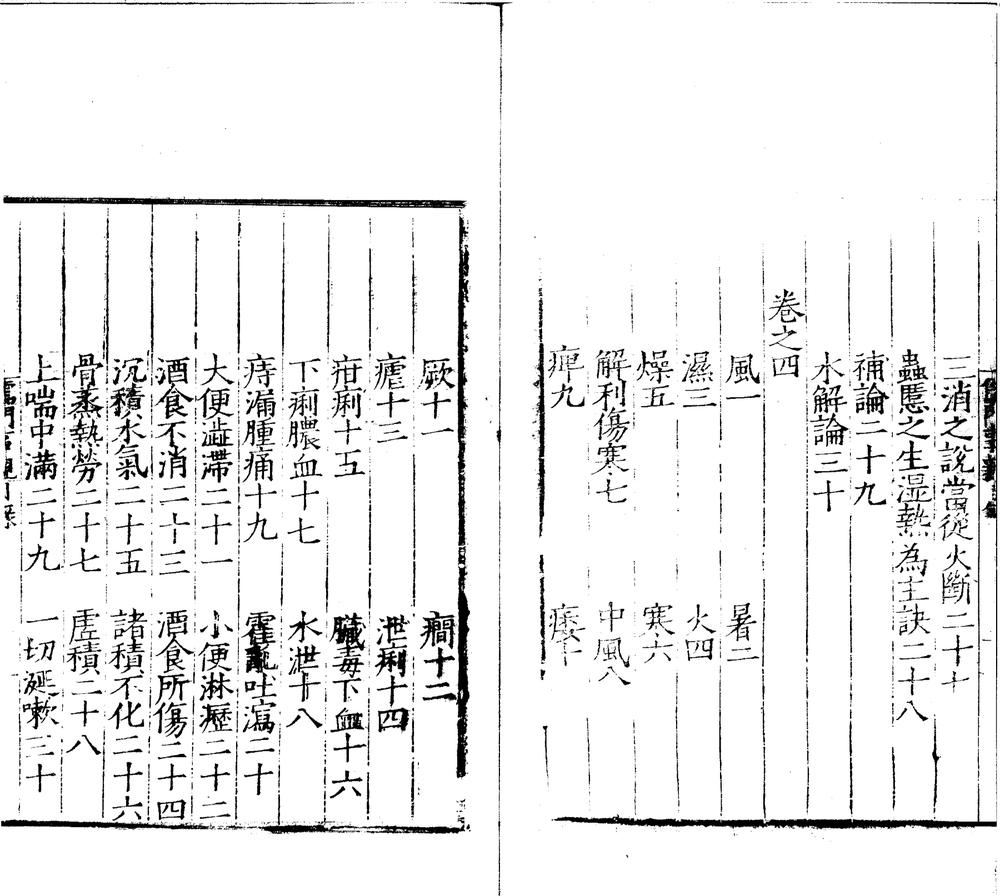 三消之說當從火斷二十七
蟲䘌之生湿熱為主訣二十八
補論二十九
水解論三十
卷之四
風一　暑二
濕三　火四
燥五　寒六
解利傷寒七　中風八
痺九　痿十
厥十一　癎十二
瘧十三　泄痢十四
疳痢十五　臟毒下血十六
下痢膿血十七　水泄十八
痔漏腫痛十九　霍亂吐瀉二十
大便澁滯二十一　小便淋瀝二十二
酒食不消二十三　酒食所傷二十四
沉積水氣二十五　諸積不化二十六
骨蒸熱勞二十七　虛積二十八
上喘中滿二十九　一切涎嗽三十